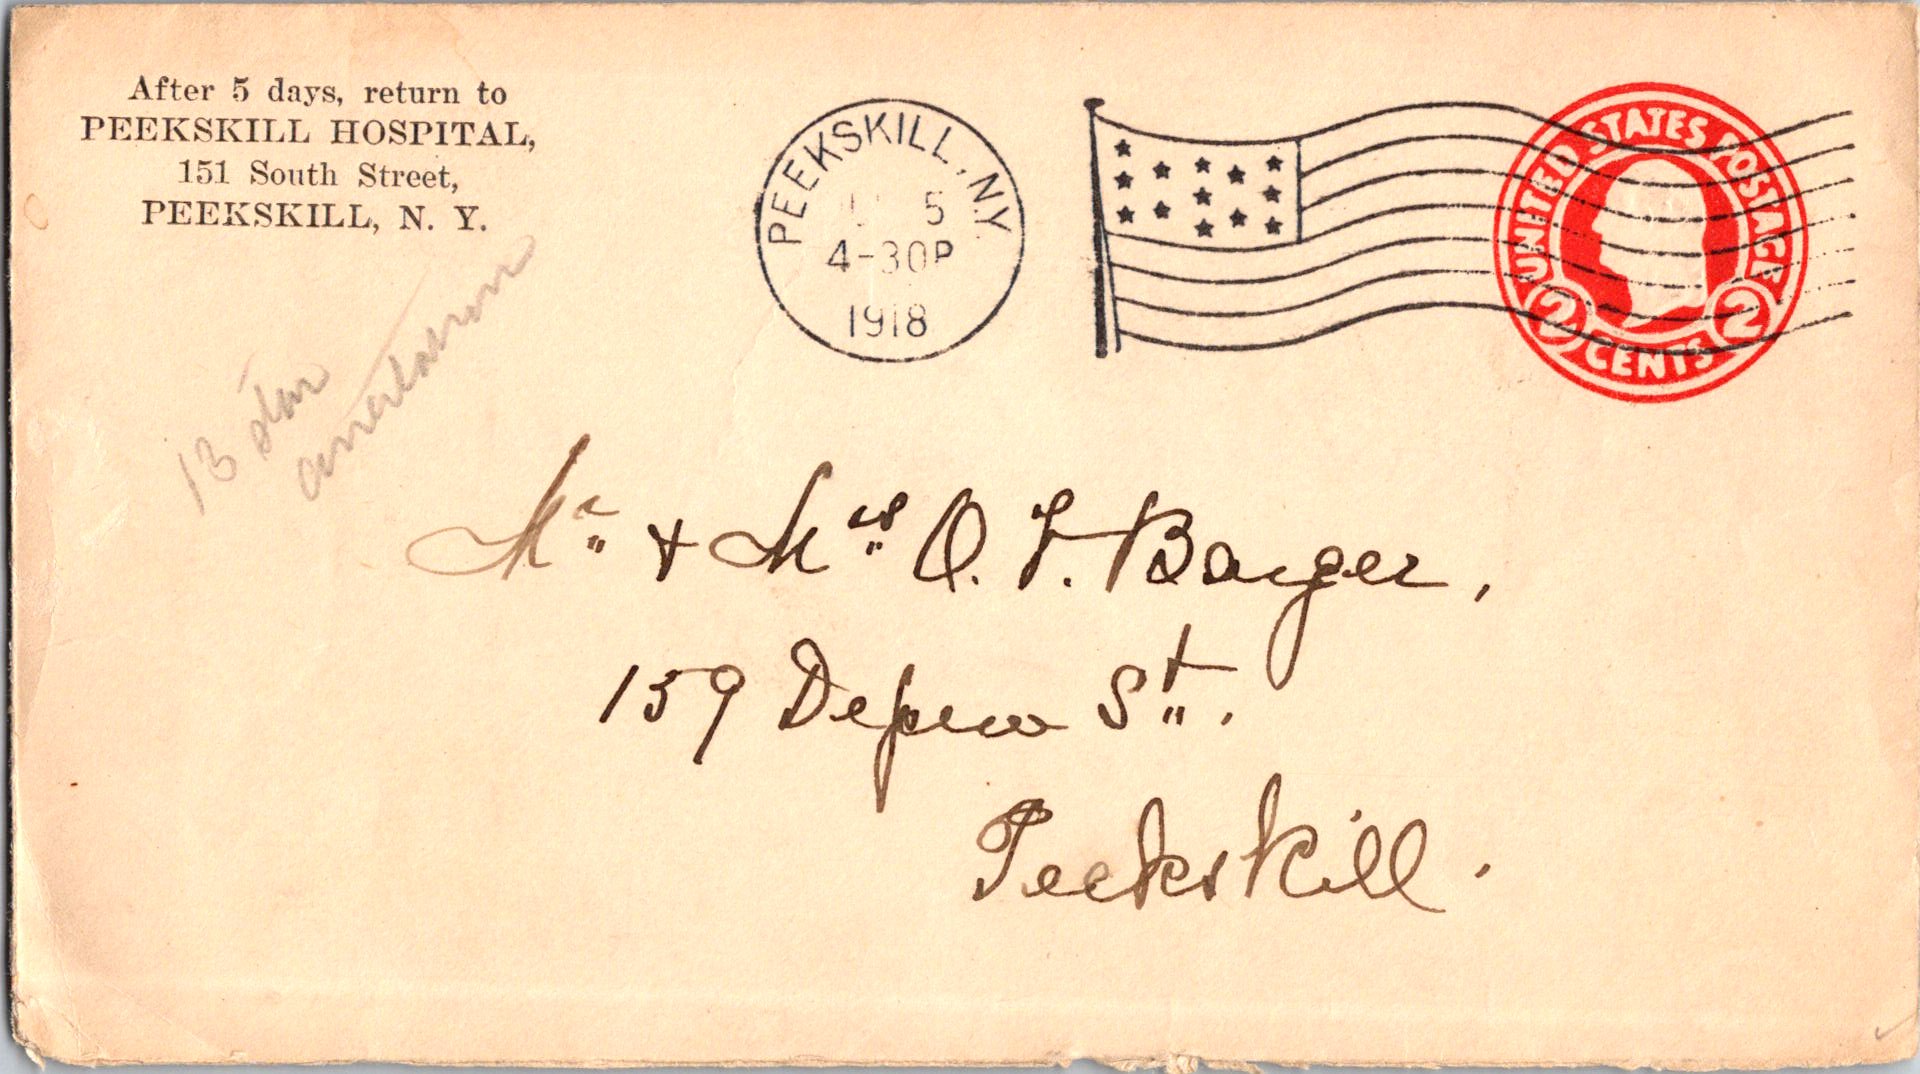 After 5 days, return to
PEEKSKILL HOSPITAL,
151 South Street,
PEEKSKILL, N. Y.
PEEKSKILL, N.Y.
5
4-30P
1918
UNITED STATES POSTAGE
2 CENTS 2
13 star
Mr & Mrs O. F. Barger,
159 Depew St.
Peekskill.